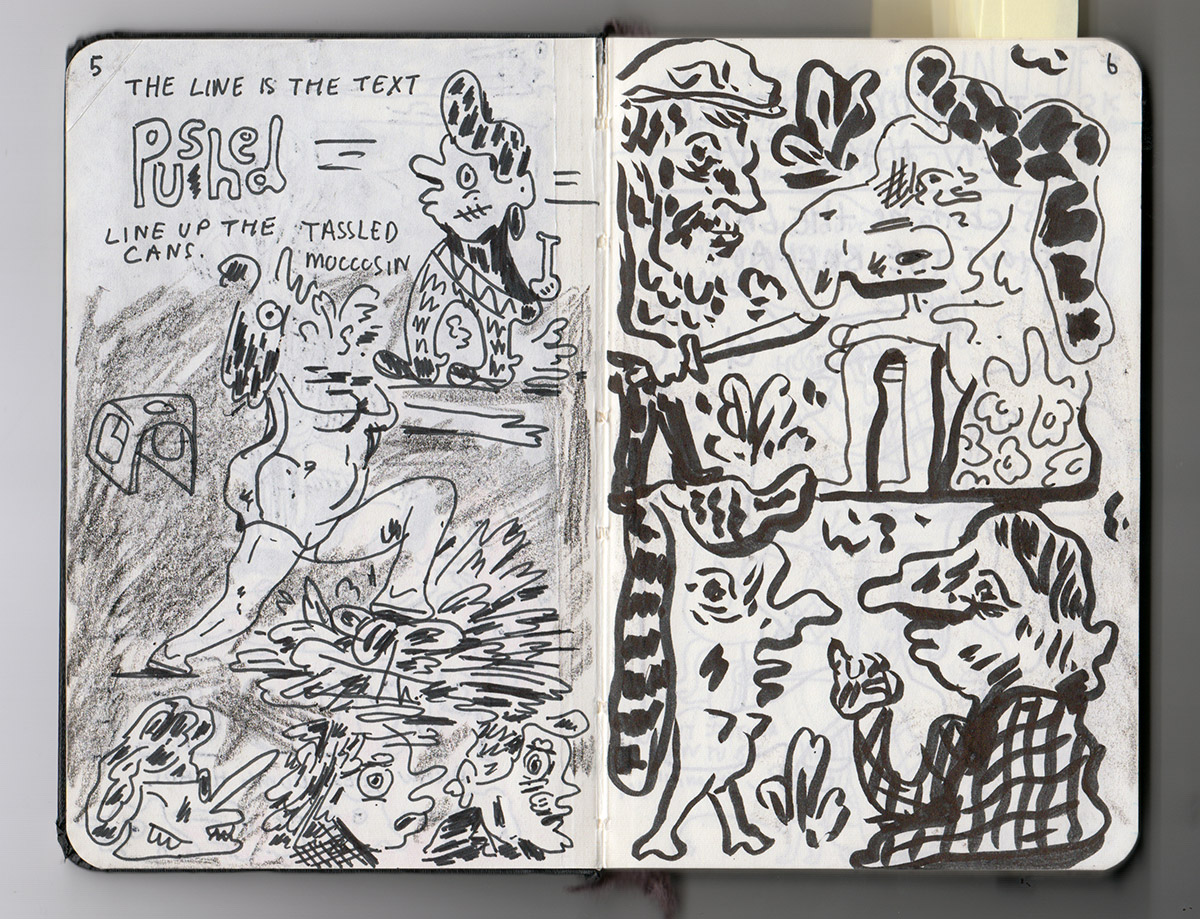 5
THE LINE IS THE TEXT
PUSHed
LINE UP THE
CANS.
TASSLED
MOCCOSIN
6